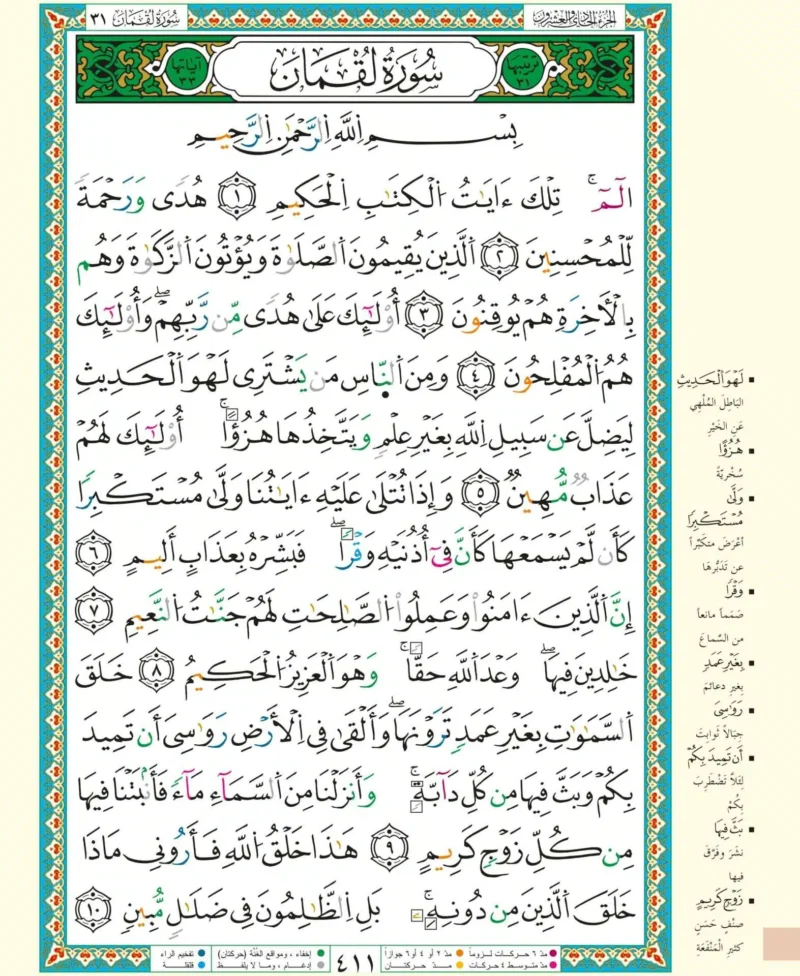 الجزء الحادي والعشرون
سورة لقمان ٣١
ترتيبها ٣١
سُورَةُ لُقْمَان
آياتها ٣٣
بِسْمِ اِللَّهِ اِلرَّحْمَٰنِ اِلرَّحِيمِ
أَلَٓمِّٓۚ تِلْكَ ءَايَٰتُ اُلْكِتَٰبِ اِلْحَكِيمِ ١ هُدىً وَرَحْمَةً
لِّلْمُحْسِنِينَ ٢ اَلَّذِينَ يُقِيمُونَ اَلصَّلَوٰةَ وَيُؤْتُونَ اَلزَّكَوٰةَ وَهُم
بِالْأَخِرَةِ هُمْ يُوقِنُونَ ٣ أُوْلَٰٓئِكَ عَلَىٰ هُدىً مِّن رَّبِّهِمْۖ وَأُوْلَٰٓئِكَ
هُمُ اُلْمُفْلِحُونَ ٤ وَمِنَ اَلنَّاسِ مَن يَشْتَرِي لَهْوَ اَلْحَدِيثِ
لِيُضِلَّ عَن سَبِيلِ اِللَّهِ بِغَيْرِ عِلْمٖ وَيَتَّخِذُهَا هُزُؤاًۚ أُوْلَٰٓئِكَ لَهُمْ
عَذَابٌ مُّهِينٌ ٥ وَإِذَا تُتْلَىٰ عَلَيْهِ ءَايَٰتُنَا وَلَّىٰ مُسْتَكْبِراً
كَأَن لَّمْ يَسْمَعْهَا كَأَنَّ فِي أُذْنَيْهِ وَقْراًۖ فَبَشِّرْهُ بِعَذَابٍ أَلِيمٍ ٦
إِنَّ اَلَّذِينَ ءَامَنُواْ وَعَمِلُواْ اُلصَّٰلِحَٰتِ لَهُمْ جَنَّٰتُ اُلنَّعِيمِ ٧
خَٰلِدِينَ فِيهَاۖ وَعْدَ اَللَّهِ حَقّاًۚ وَهُوَ اَلْعَزِيزُ اُلْحَكِيمُ ٨ خَلَقَ
اَلسَّمَٰوَٰتِ بِغَيْرِ عَمَدٖ تَرَوْنَهَاۖ وَأَلْقَىٰ فِي اِلْأَرْضِ رَوَٰسِيَ أَن تَمِيدَ
بِكُمْ وَبَثَّ فِيهَا مِن كُلِّ دَآبَّةٖۚ وَأَنزَلْنَا مِنَ اَلسَّمَآءِ مَآءً فَأَنۢبَتْنَا فِيهَا
مِن كُلِّ زَوْجٖ كَرِيمٍ ٩ هَٰذَا خَلْقُ اُللَّهِ فَأَرُونِي مَاذَا
خَلَقَ اَلَّذِينَ مِن دُونِهِۦۚ بَلِ اِلظَّٰلِمُونَ فِي ضَلَٰلٖ مُّبِينٖ ١٠
▪ لَهْوَ اَلْحَدِيثِ
البَاطِلَ المُلْهِي
عَنِ الخَيْرِ
▪ هُزُؤاً
سُخْرِيَّةً
▪ وَلَّىٰ
مُسْتَكْبِراً
أعْرَضَ متكبّراً
عن تَدَبُّرِهَا
▪ وَقْراً
صَمَماً مانعاً
من السَّماعِ
▪ بِغَيْرِ عَمَدٖ
بِغير دعائمَ
▪ رَوَٰسِيَ
جِبَالاً ثَوابتَ
▪ أَن تَمِيدَ بِكُمْ
لِئَلاَّ تَضْطَرِبَ
بِكُمْ
▪ بَثَّ فِيهَا
نشَرَ وفَرَّقَ
فيها
▪ زَوْجٖ كَرِيمٍ
صِنْفٍ حَسَنٍ
كثيرِ الْمَنْفَعَةِ
مدّ ٦ حركات لزوماً مدّ ٢ أو ٤ أو ٦ جوازاً
مدّ متوسط ٤ حركات مدّ حركتان
٤١١
إخفاء، ومواقع الغُنَّة (حركتان) تفخيم الراء
إدغام، وما لا يلفظ قلقلة